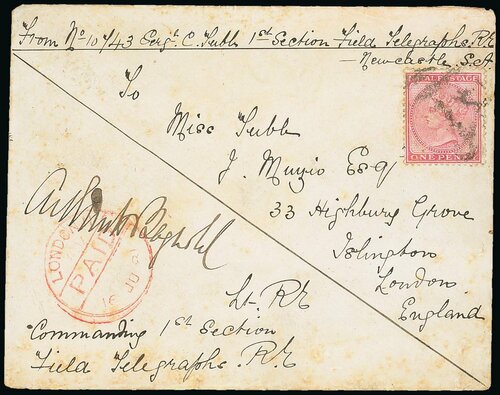 From No 10743 Sergt. C. Tubb 1st Section Field Telegraphs. R.E
— Newcastle. S.A
To
Miss Tubb
J. Muzio Esq
33 Highbury Grove
Islington
London.
England
NATAL POSTAGE
ONE PENNY
LONDON
PAID
16 JU
Lt. R.E
Commanding 1st Section
Field Telegraphs. R.E